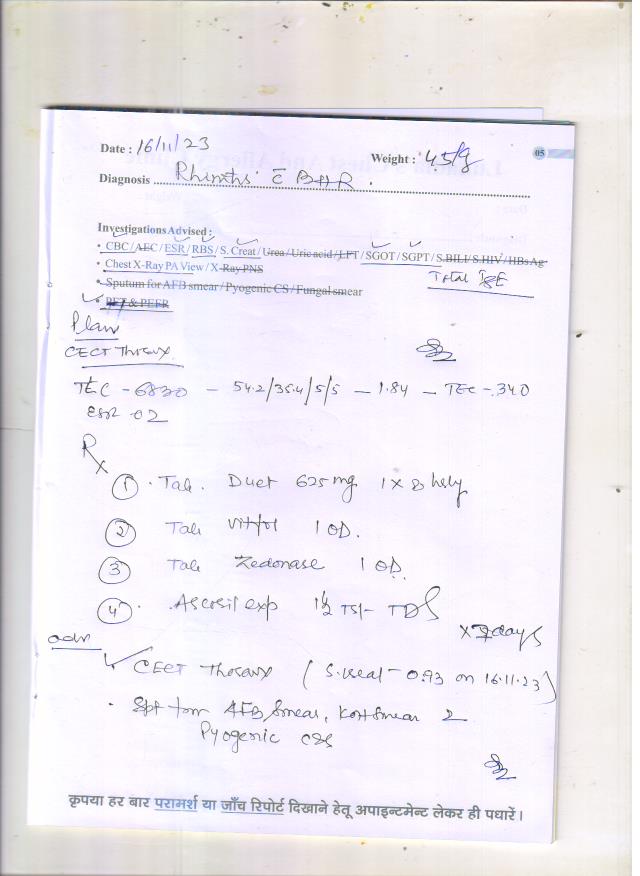 Date : 16/11/23
Weight : 45
05
Diagnosis Rhinitis c BHR.
Investigations Advised :
• CBC/AEC/ESR/RBS/S. Creat/Urea/Uric acid/LFT/SGOT/SGPT/S.BILI/S.HIV/HBsAg
• Chest X-Ray PA View/X-Ray PNS
Total IgE
• Sputum for AFB smear/Pyogenic CS/Fungal smear
• PFT & PEFR
Plan
CECT Thorax
TLC - 6830 - 54.2/35.4/5/5 - 1.84 - TEC - 340
ESR 02
Rx
① Tab. Duet 625 mg 1 x 8 hrly
② Tab 1 OD.
③ Tab Zedonase 1 OD.
④ Ascosil exp 1½ TSF TDS
x 7 days
adv
CECT Thorax (S. creat - 0.93 on 16.11.23)
• Spt for AFB Smear, KOH Smear 2
Pyogenic CS
कृपया हर बार परामर्श या जाँच रिपोर्ट दिखाने हेतू अपाइन्टमेन्ट लेकर ही पधारें।